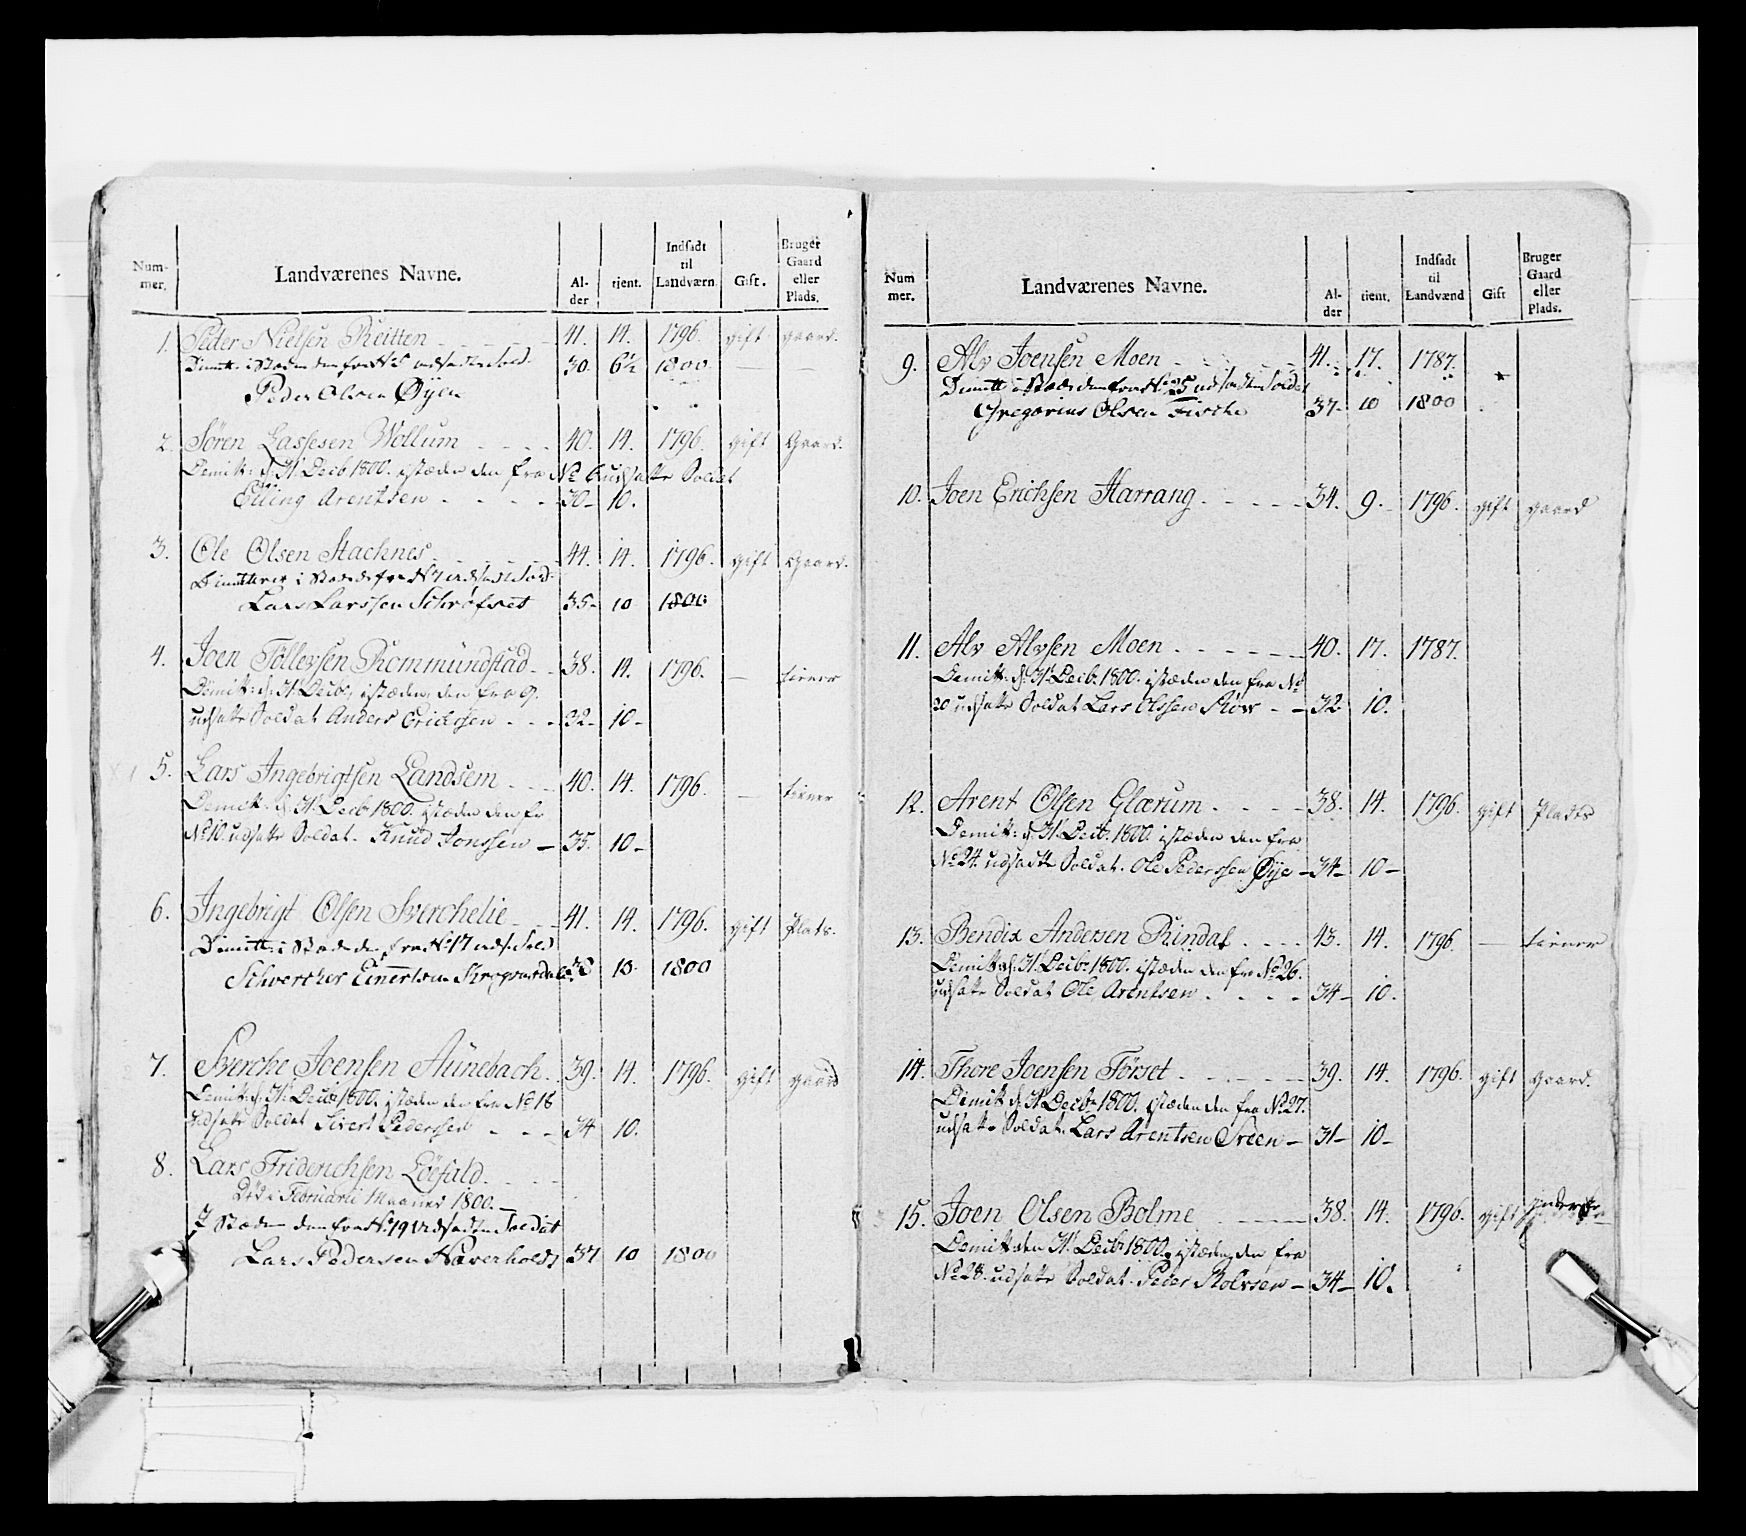 Num-
mer.
Landværenes Navne.
Al-
der
tient.
Indsadt
til
Landværn
Gift.
Bruger
Gaard
eller
Plads.
1. Peder Nielsen Reitten 41. 14. 1796. gift gaard.
Dimitt: i Stæden den fra No 5 udsadte Sold. 30. 6½ 1800
Peder Olsen Øyen
2. Sören Lassesen Wollum 40. 14. 1796. gift Gaard.
Demitt: d: 31 Decb 1800. istæden den fra No 6 udsatte Soldat
Elling Arentsen 30 10.
3. Ole Olsen Stachnes 44. 14. 1796. gift Gaard.
i Stædet fra No 7 udsadte Sold.
Lars Larssen Schrøfset 35 10 1800
4. Joen Tøllefsen Rommündstad 38. 14. 1796. — tiener
Demitt: d: 31 Decbr, istæden den fra 9.
udsatte Soldat Anders Erichsen 32 10
5. Lars Ingebrigtsen Landsem 40. 14. 1796. — tiener
Demitt. d: 31 Decbr 1800. istæden den fr
No 10. udsatte Soldat. Knud Jonssen 35. 10
6. Ingebrigt Olsen Sverchelie 41. 14. 1796. gift Plats.
Dimitt: i Stæde den fra No 17 uds. Sold
Schvercher Einertsen 10. 1800
7. Sverche Joensen Aünebach 39. 14. 1796. gift gaard
Demitt: d: 31 Decbr 1800. istæden den fra No 18
udsatte Soldat Sivert Pedersen 34 10.
8. Lars Friderichsen Löefald
Död i Februarii Maaned 1800.
I Stæden den fra No 19 udsadte Soldat
Lars Pedersen Haverholdt 37 10 1800
Num
mer.
Landværenes Navne.
Al-
der
tient.
Indsadt
til
Landværnd
Gift
Bruger
Gaard
eller
Plads.
9. Alv Joensen Moen 41. 17. 1787.
Dimitt i Stæde den fra No 25 udsadte Soldat
Gregorius Olsen Fische 37 10 1800
10. Joen Erichsen Harrang 34. 9. 1796. gift gaard
11. Alv Alvsen Moen 40. 17. 1787.
Demitt: d: 31 Decb. 1800. istæden den fra No
20 udsatte Soldat Lars Olssen 32 10.
12. Arent Olsen Glærum 38. 14. 1796. gift Plads
Demitt: d: 31 Decb. 1800. istæden den fra
No 24. udsadte Soldat. Ole Pederssen Øye 34 10
13. Bendix Andersen Rindal 43. 14. 1796. — tiener
Demitt d: 31 Decbr 1800. istæden den fra No 26.
udsatte Soldat Ole Arentsen 34 10.
14. Thore Joensen Förset 39. 14. 1796. gift gaard.
Demitt d: 31 Decbr 1800. istæden den fra No 27.
udsatte Soldat. Lars Arentsen Sveen 31 10
15. Joen Olsen Bolme 38. 14. 1796. gift
Demitt den 31 Decbr 1800. istæden den fra
No 28. udsatte Soldat. Peder Rolvsen 34 10.